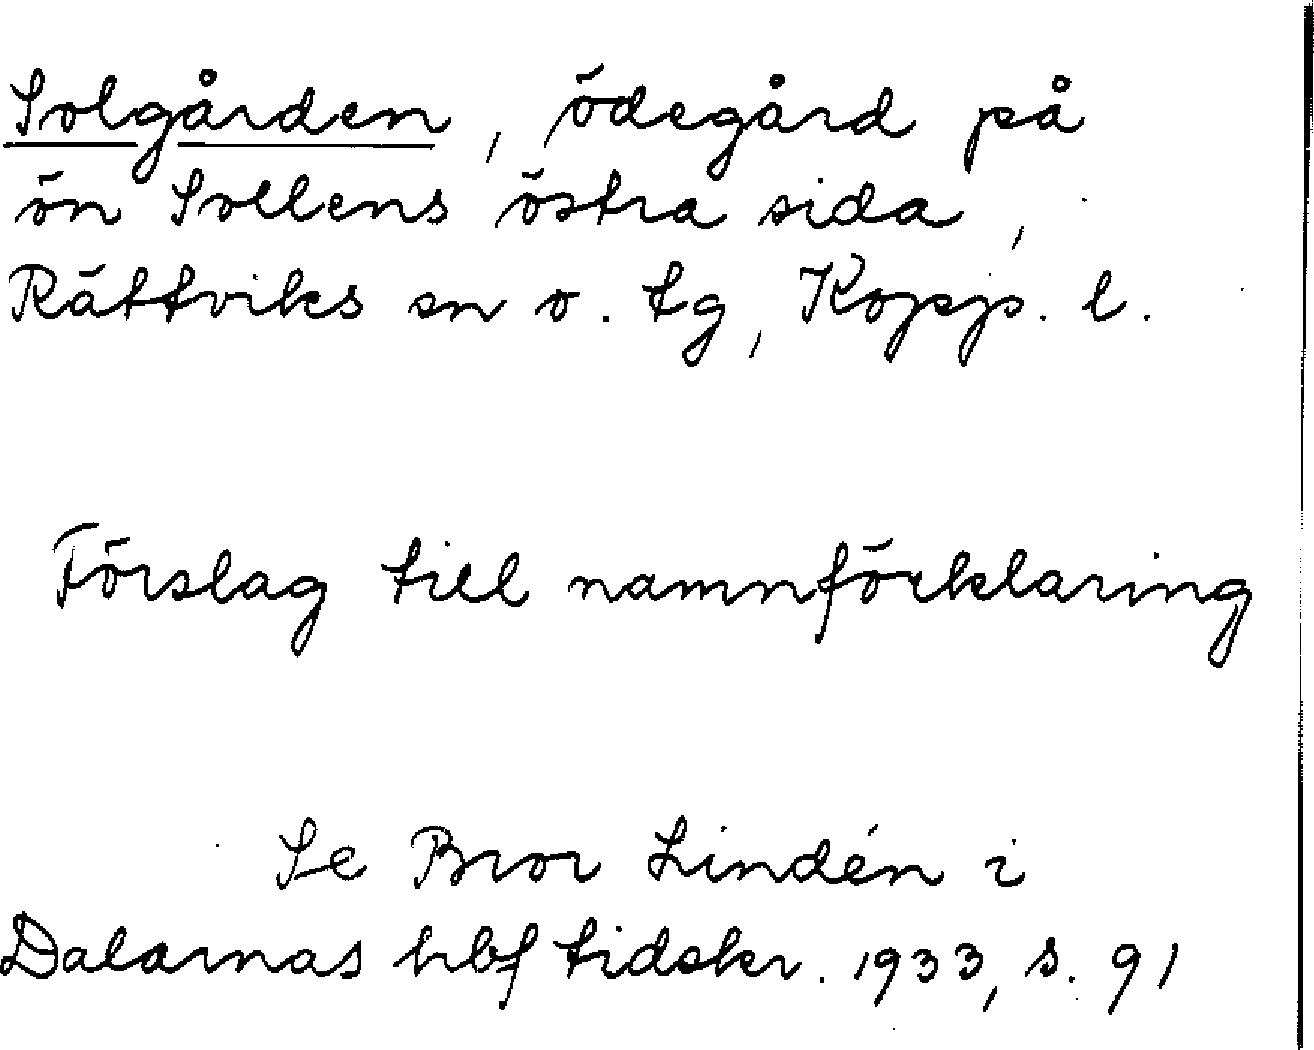 Solgården, ödegård på
ön Sollens östra sida,
Rättviks sn o. tg, Kopp. l.
Förslag till namnförklaring
Se Bror Lindén i
Dalarnas hbf tidskr. 1933, s. 91